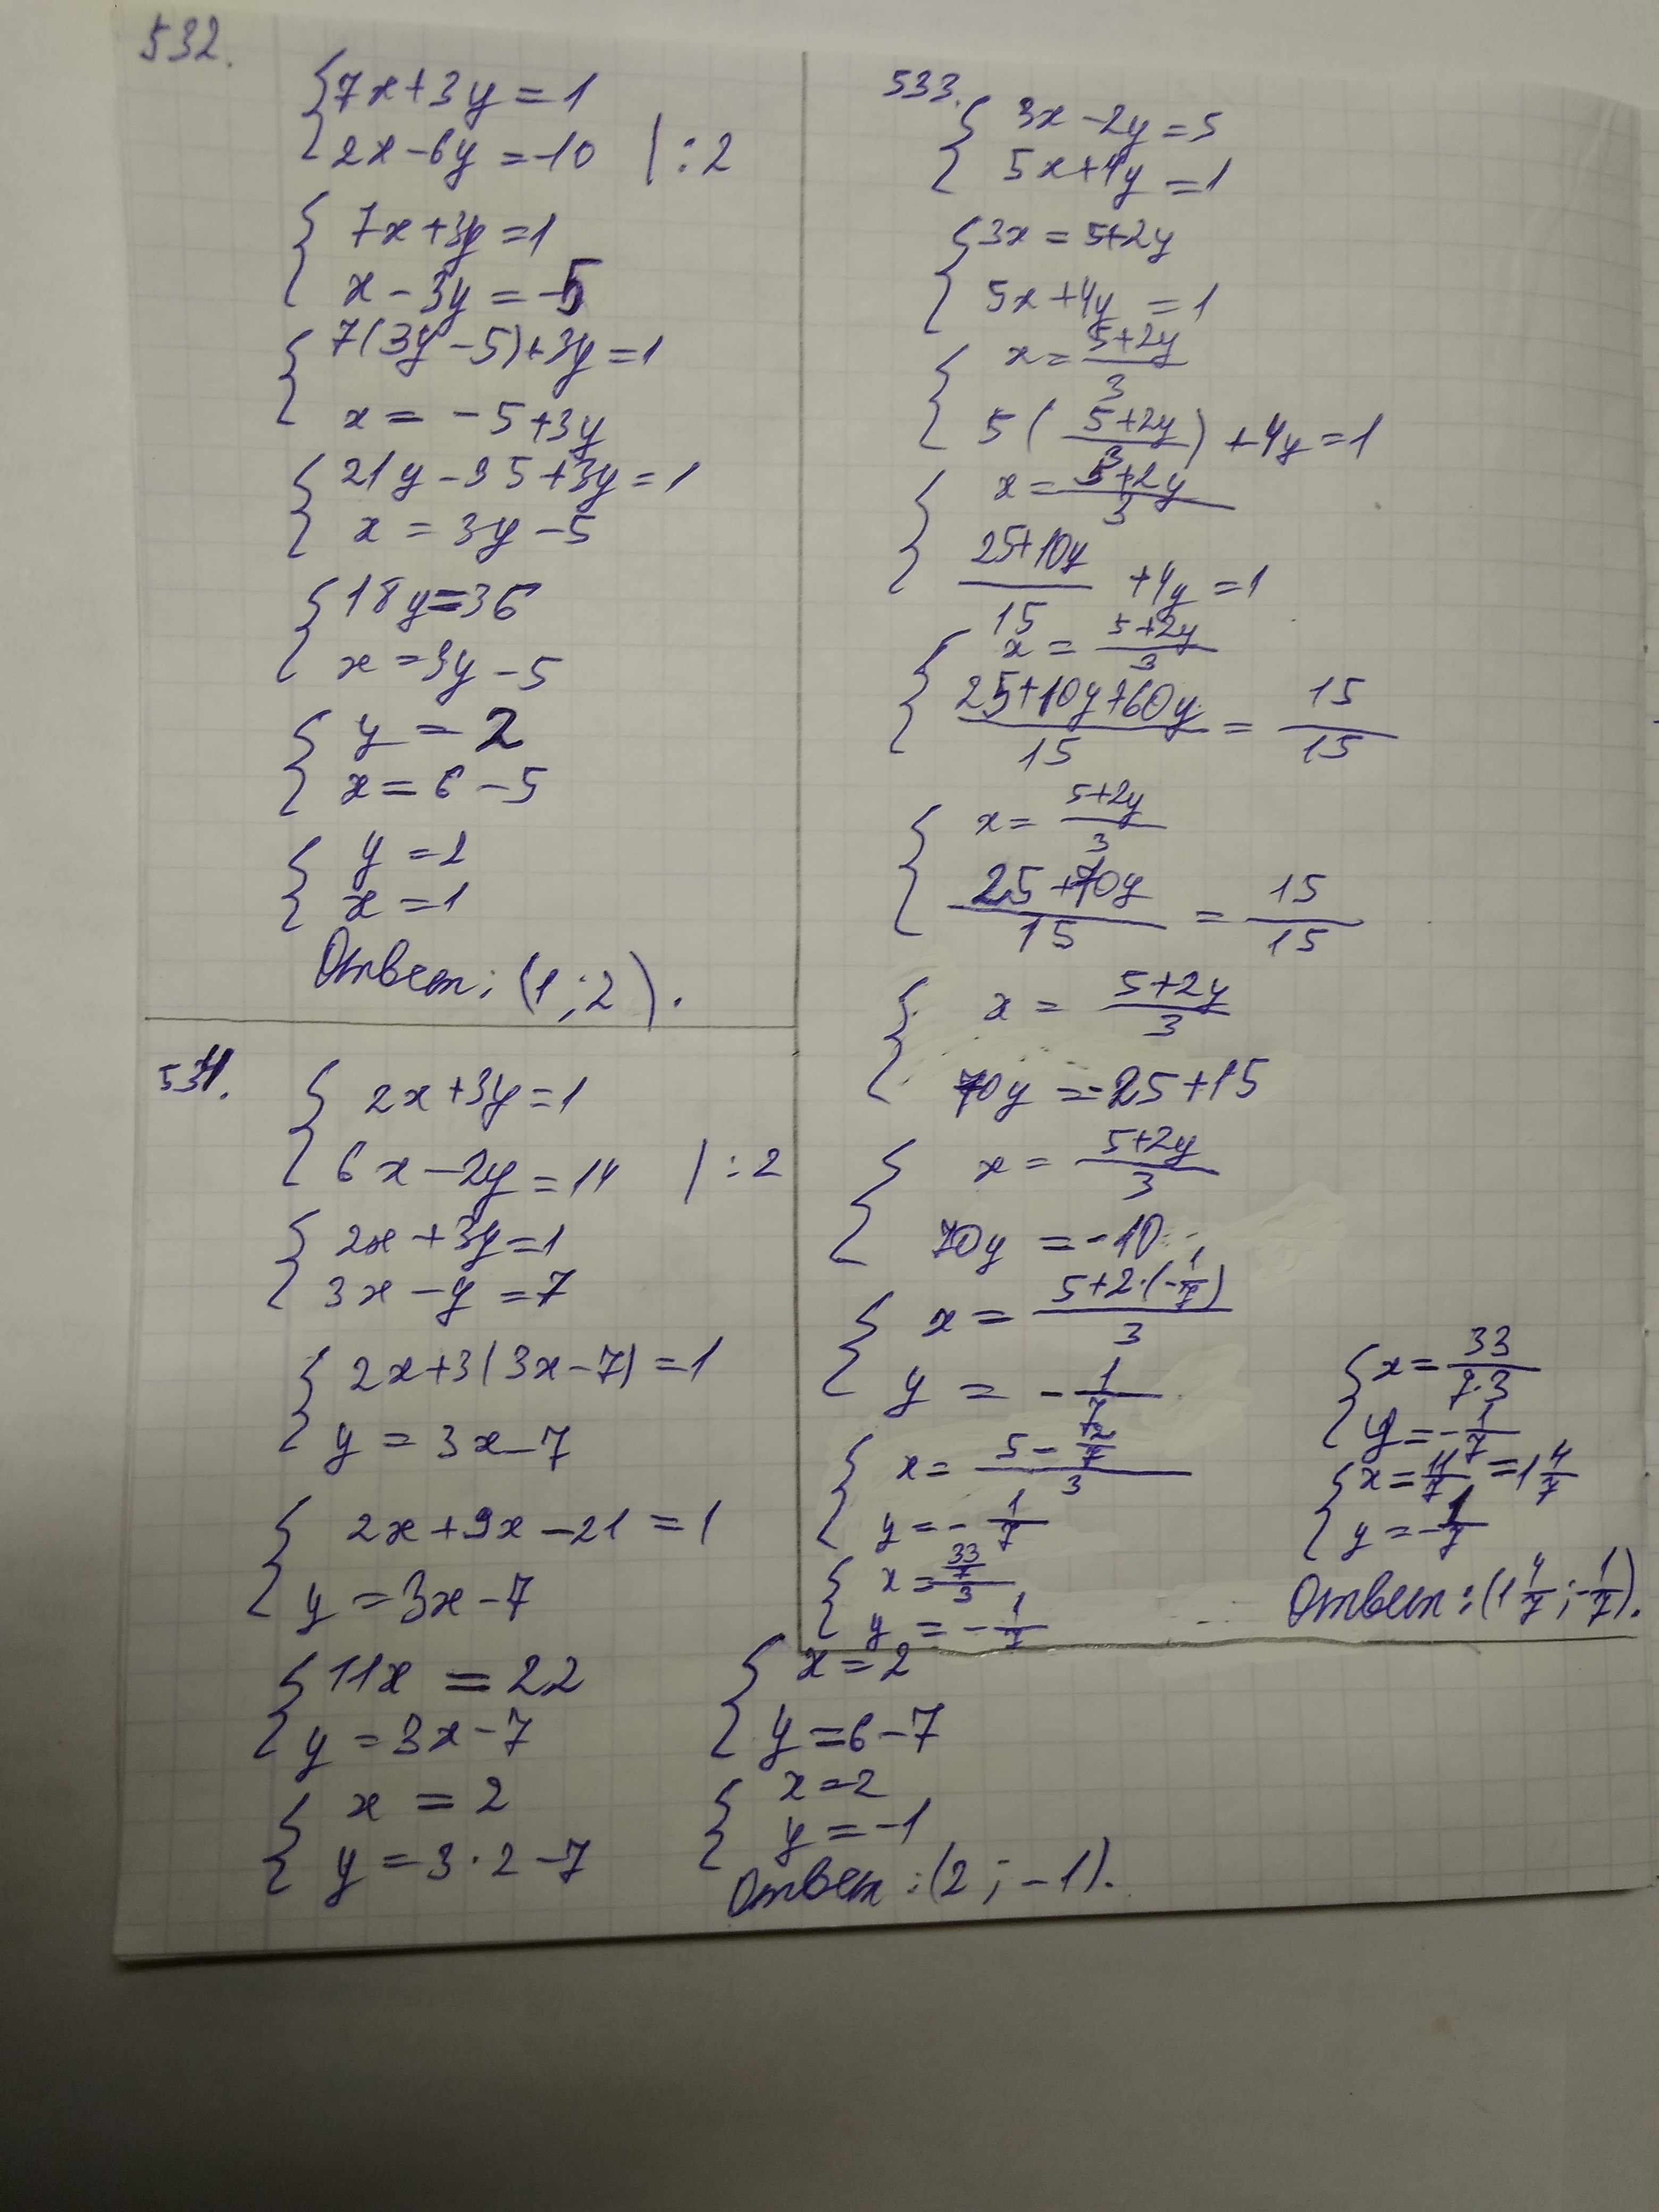 532.
7x+3y=1
2x-6y=-10 |:2
7x+3y=1
x-3y=-5
7(3y-5)+3y=1
x=-5+3y
21y-35+3y=1
x=3y-5
18y=36
x=3y-5
y=2
x=6-5
y=2
x=1
Ответ: (1;2).
534.
2x+3y=1
6x-2y=14 |:2
2x+3y=1
3x-y=7
2x+3(3x-7)=1
y=3x-7
2x+9x-21=1
y=3x-7
11x=22
y=3x-7
x=2
y=3·2-7
x=2
y=6-7
x=2
y=-1
Ответ: (2;-1).
533.
3x-2y=5
5x+4y=1
3x=5+2y
5x+4y=1
x=\frac{5+2y}{3}
5(\frac{5+2y}{3})+4y=1
x=\frac{5+2y}{3}
\frac{25+10y}{15}+4y=1
x=\frac{5+2y}{3}
\frac{25+10y+60y}{15}=\frac{15}{15}
x=\frac{5+2y}{3}
\frac{25+70y}{15}=\frac{15}{15}
x=\frac{5+2y}{3}
70y=-25+15
x=\frac{5+2y}{3}
70y=-10
x=\frac{5+2·(-\frac{1}{7})}{3}
y=-\frac{1}{7}
x=\frac{5-\frac{2}{7}}{3}
y=-\frac{1}{7}
x=\frac{\frac{33}{7}}{3}
y=-\frac{1}{7}
x=\frac{33}{7·3}
y=-\frac{1}{7}
x=\frac{11}{7}=1\frac{4}{7}
y=-\frac{1}{7}
Ответ: (1\frac{4}{7};-\frac{1}{7}).